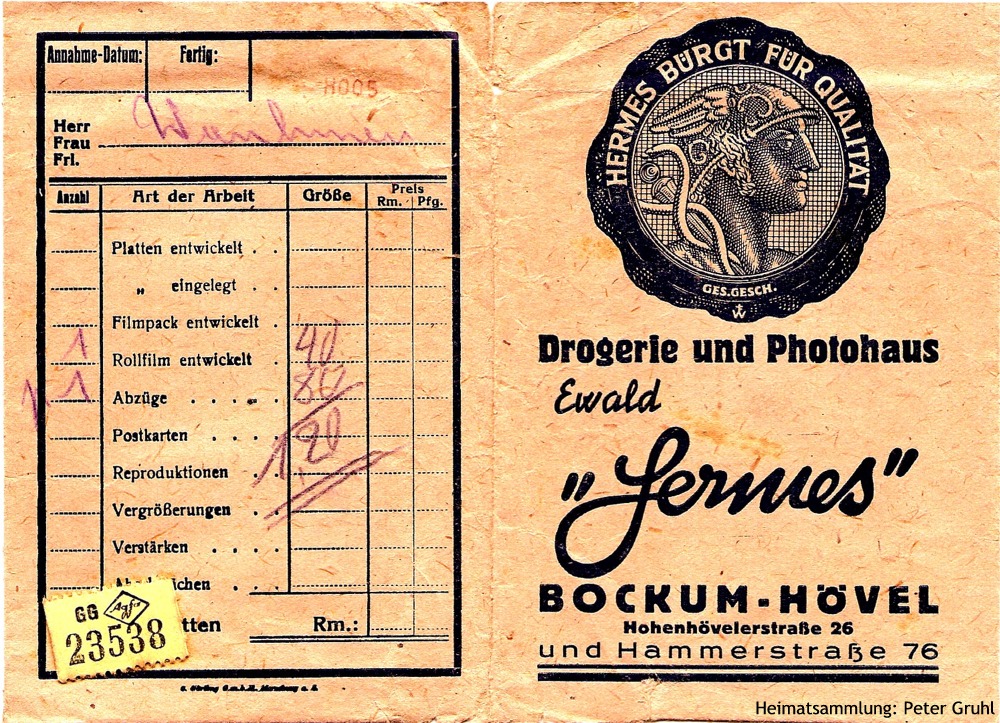 Annahme-Datum: Fertig:
H005
Herr
Frau
Frl.
Anzahl Art der Arbeit Größe Preis
Rm. Pfg.
Platten entwickelt . .
„ eingelegt . .
Filmpack entwickelt .
1 Rollfilm entwickelt . 40
1 Abzüge . . . . . 80
Postkarten . . . . 1,20
Reproduktionen . .
Vergrößerungen . .
Verstärken . . . .
GG Agfa
23538
Rm.:
HERMES BÜRGT FÜR QUALITÄT
GES.GESCH.
W
Drogerie und Photohaus
Ewald
„Jermes"
BOCKUM-HÖVEL
Hohenhövelerstraße 26
und Hammerstraße 76
Heimatsammlung: Peter Gruhl